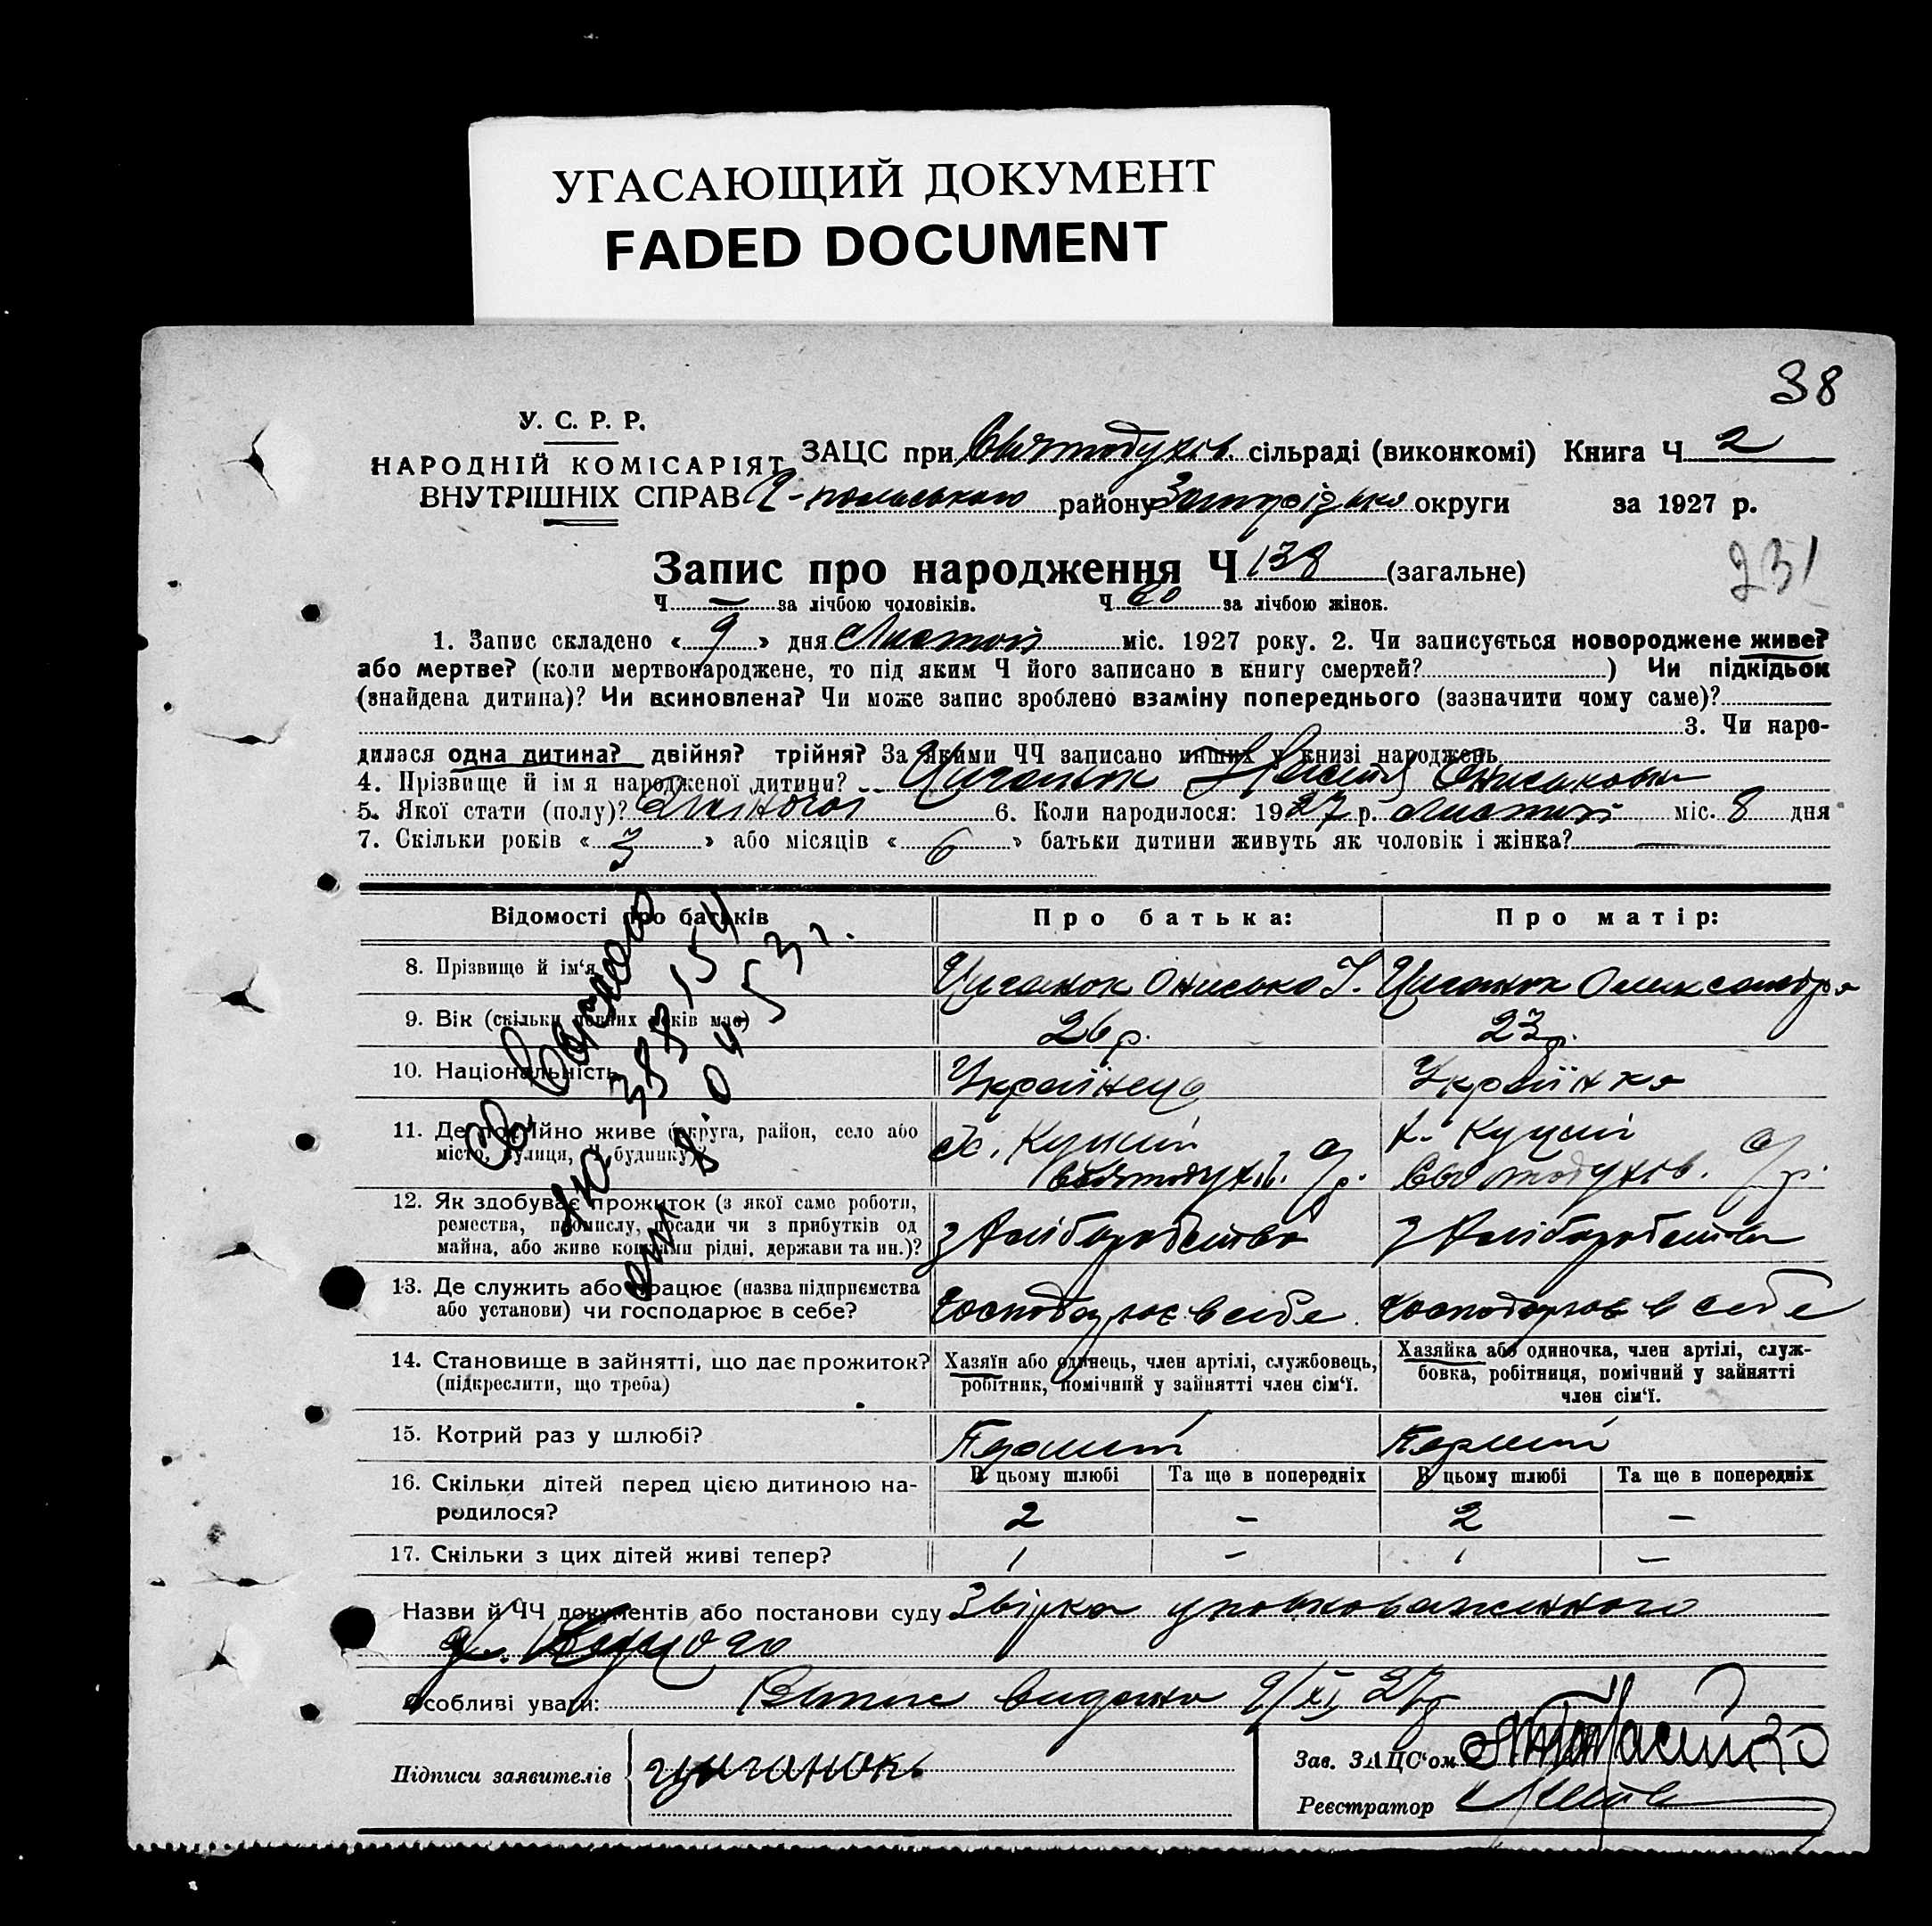 УГАСАЮЩИЙ ДОКУМЕНТ
FADED DOCUMENT
38
У. С. Р. Р.
НАРОДНІЙ КОМІСАРІЯТ
ВНУТРІШНІХ СПРАВ
ЗАЦС при Святодухів. сільраді (виконкомі) Книга Ч 2
району Запорізької округи за 1927 р.
Запис про народження Ч 138 (загальне)
231
Ч — за лічбою чоловіків. Ч 60 за лічбою жінок.
1. Запис складено « 9 » дня Листоп міс. 1927 року. 2. Чи записується новороджене живе?
або мертве? (коли мертвонароджене, то під яким Ч його записано в книгу смертей? ) Чи підкідьок
(знайдена дитина)? Чи всиновлена? Чи може запис зроблено взаміну попереднього (зазначити чому саме)?
3. Чи наро-
дилася одна дитина? двійня? трійня? За якими ЧЧ записано инших у книзі народжень
4. Прізвище й ім я народженої дитини? Циганок Настя Онисиковна
5. Якої стати (полу)? Жіночої 6. Коли народилося: 1927 р. листоп міс. 8 дня
7. Скільки років « 3 » або місяців « 6 » батьки дитини живуть як чоловік і жінка? —
Відомості про батьків
Про батька:
Про матір:
8. Прізвище й ім'я
Циганок Онисько
Циганок Олександра
9. Вік (скільки повних років має)
26 р.
23 р.
10. Національність
Українець
Українка
11. Де постійно живе (округа, район, село або
місто, вулиця, Ч будинку)?
х. Куций
Святодухів. с/р.
х. Куций
Святодухів. с/р.
12. Як здобуває прожиток (з якої саме роботи,
ремества, промислу, посади чи з прибутків од
майна, або живе коштами рідні, держави та ин.)?
з хліборобства
з хліборобства
13. Де служить або працює (назва підприємства
або установи) чи господарює в себе?
господарює в себе.
господарює в себе
14. Становище в зайнятті, що дає прожиток?
(підкреслити, що треба)
Хазяїн або одинець, член артілі, службовець,
робітник, помічний у зайнятті член сім'ї.
Хазяйка або одиночка, член артілі, служ-
бовка, робітниця, помічний у зайнятті
член сім'ї.
15. Котрий раз у шлюбі?
Перший
Перший
В цьому шлюбі Та ще в попередніх В цьому шлюбі Та ще в попередніх
16. Скільки дітей перед цією дитиною на-
родилося?
2 — 2 —
17. Скільки з цих дітей живі тепер?
1 — 1 —
Назви й ЧЧ документів або постанови суду Звірка уповноваженного
Особливі уваги: Випис видана 9/XI 27 р
Підписи заявителів
Циганокь
Зав. ЗАЦС'ом
Реєстратор